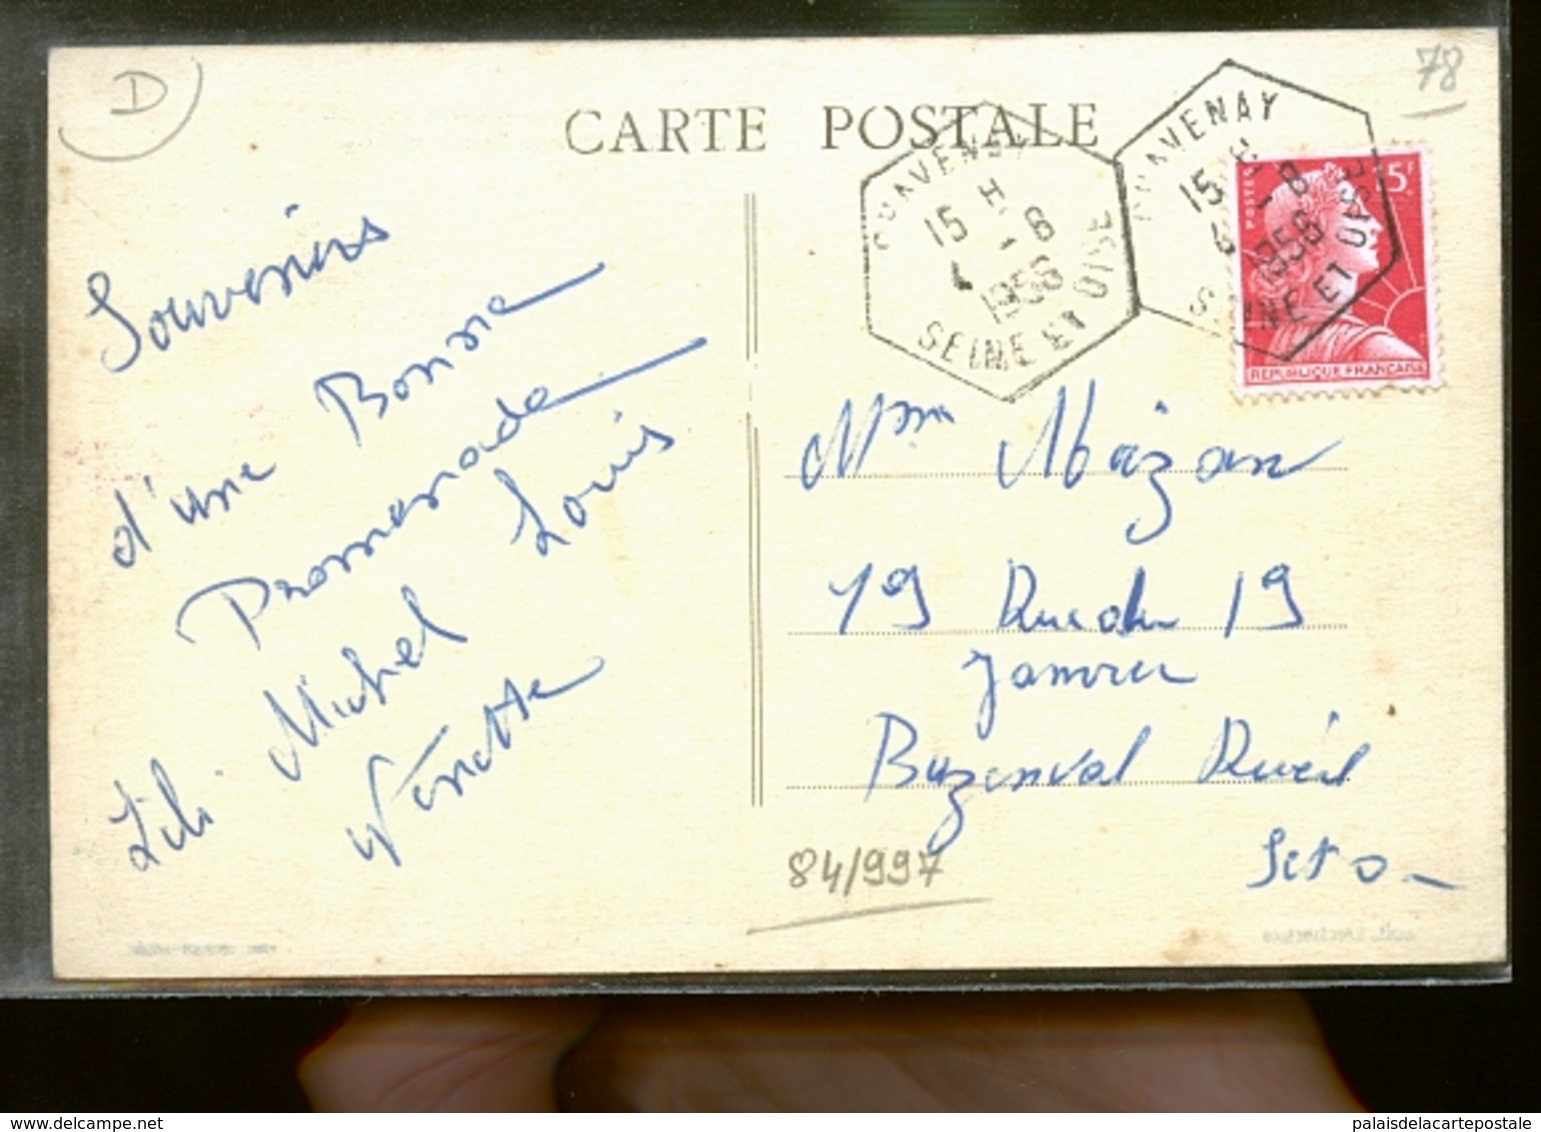 D
78
CARTE POSTALE
CRAVENAY
15 H
4 - 8
1956
SEINE ET OISE
15 H
- 8
1956
SEINE ET OISE
POSTES
15F
REPUBLIQUE FRANÇAISE
Souvenirs
d'une Bonne
Promenade
Lili Michel Louis
Ninette
Mme Mazan
19 Rue du 19
Janvier
Buzenval Rueil
S et O
84/997
palaisdelacartepostale